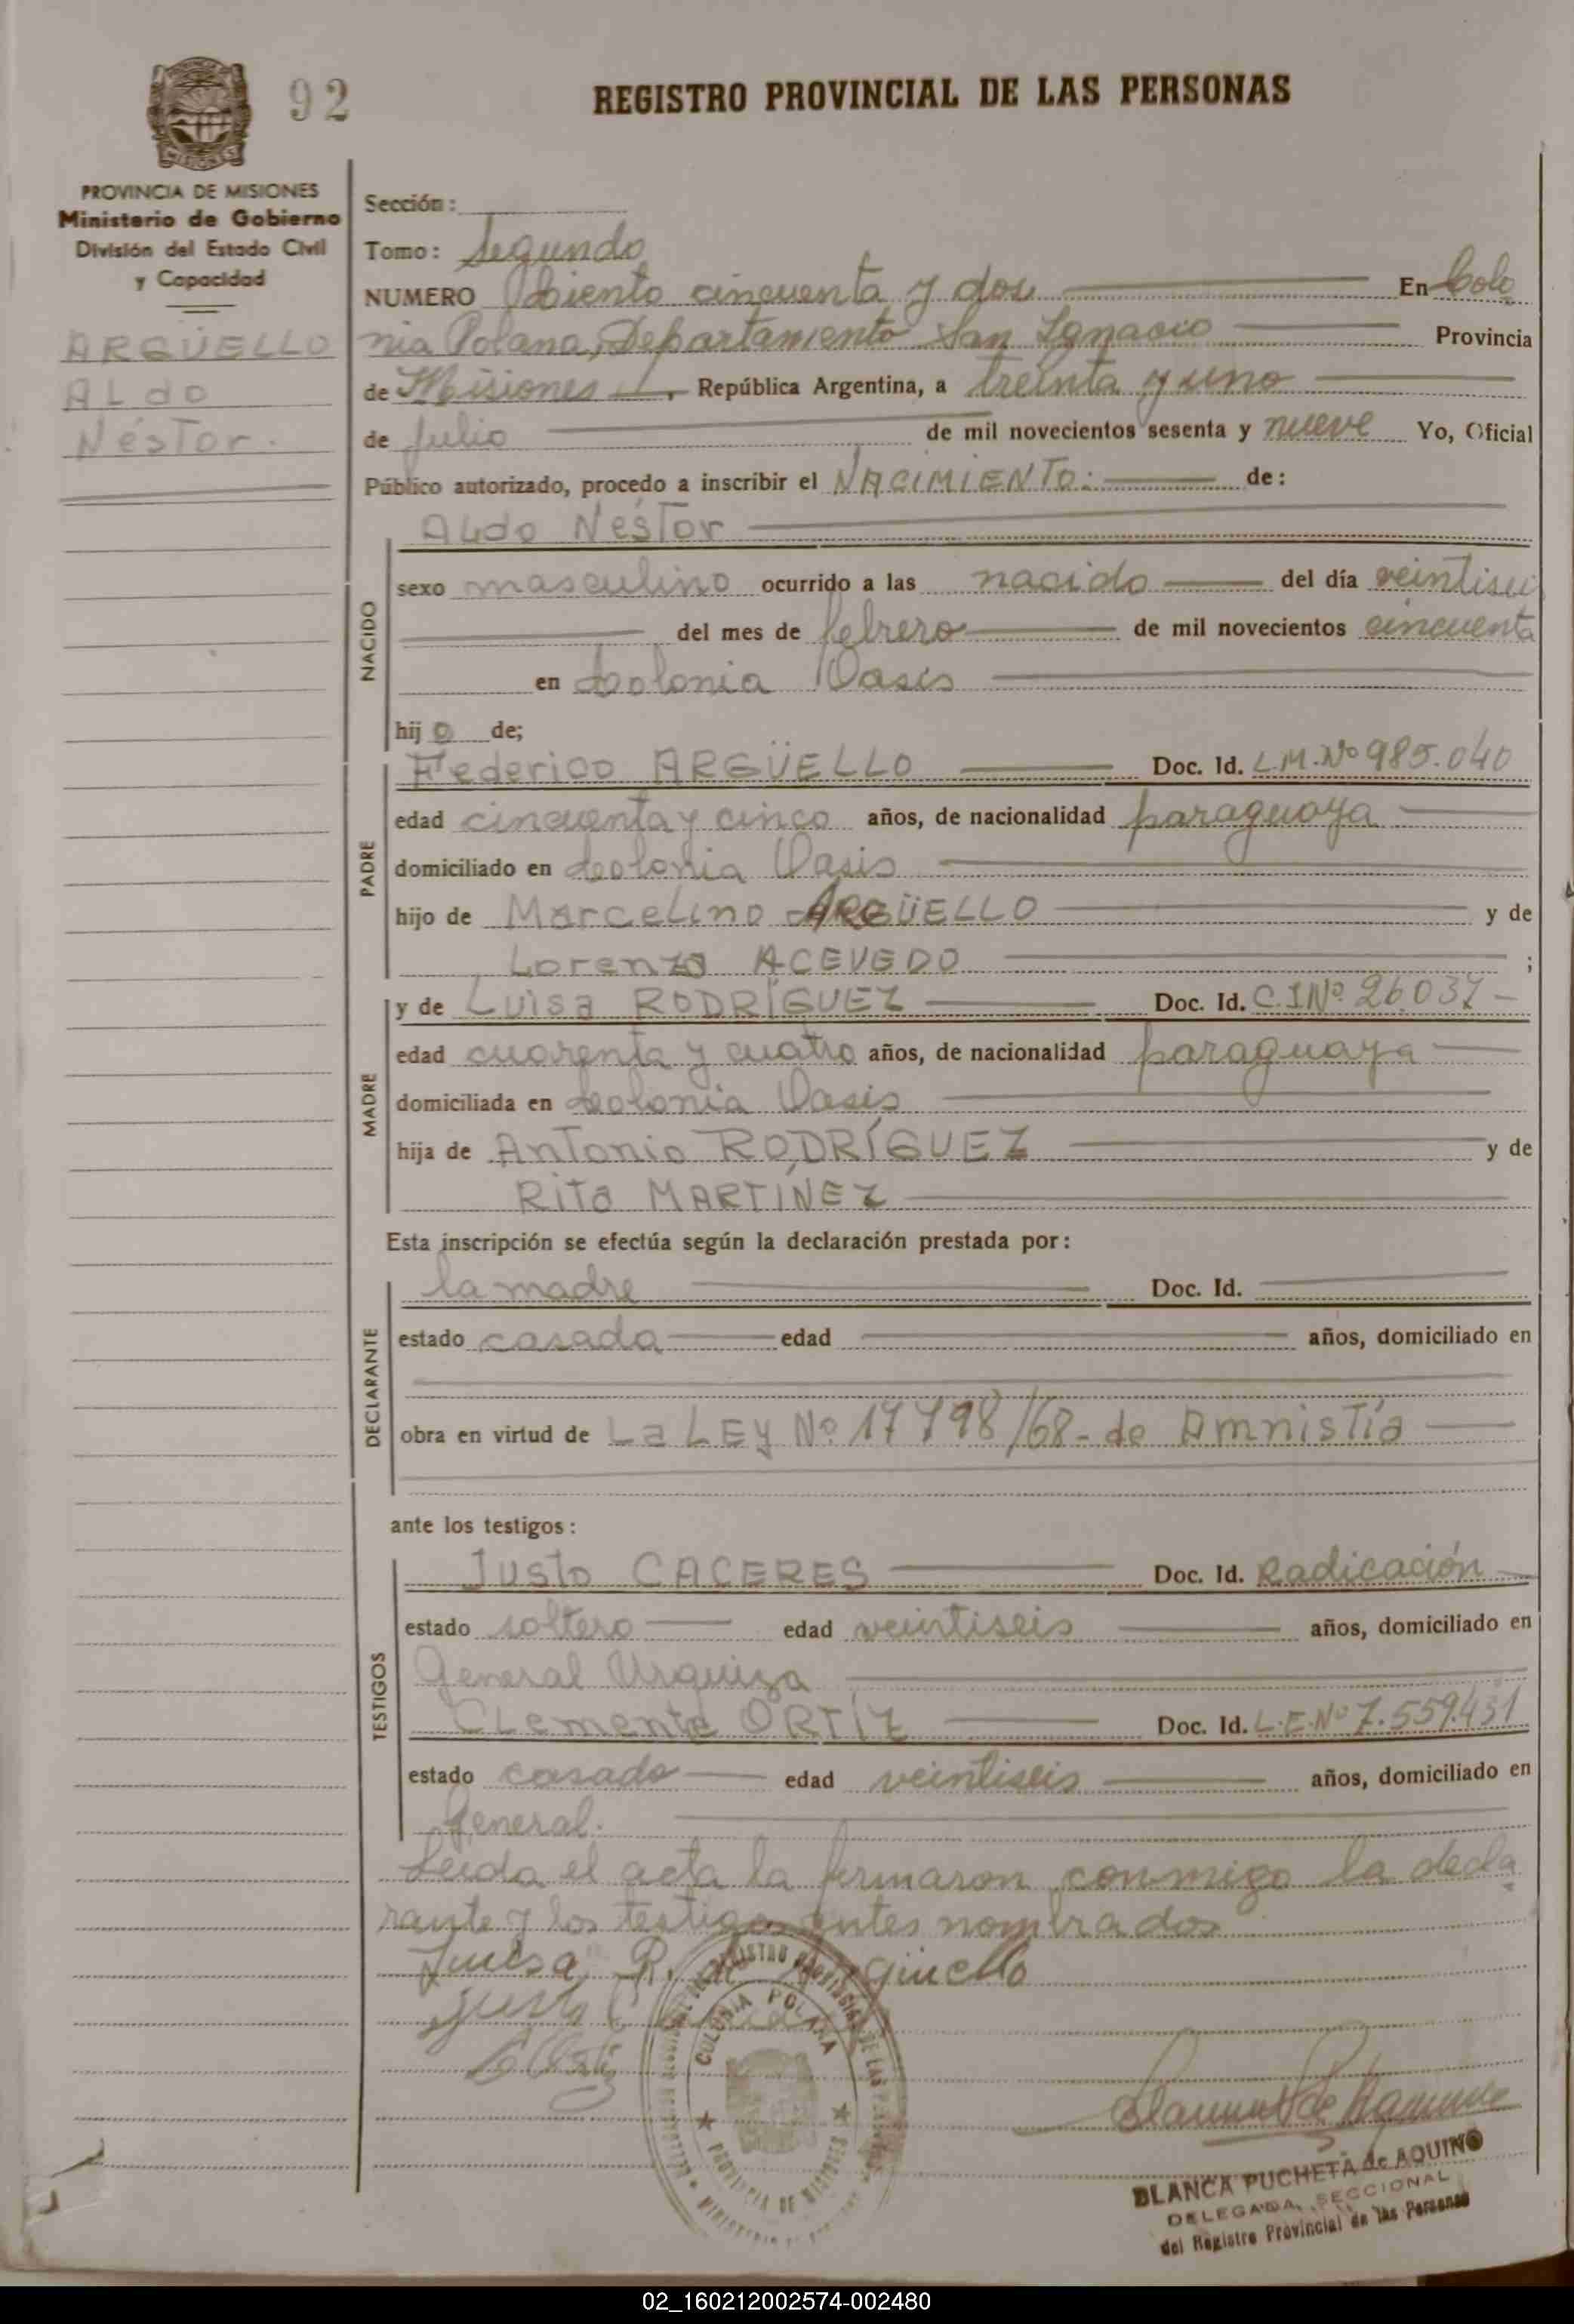 92
REGISTRO PROVINCIAL DE LAS PERSONAS
MISIONES
PROVINCIA DE MISIONES
Ministerio de Gobierno
División del Estado Civil
y Capacidad
ARGÜELLO
ALdo
NésTor.
Sección:
Tomo: Segundo
NUMERO Ciento cincuenta y dos En Colo
nia Polana, Departamento San Ignacio Provincia
de Misiones, República Argentina, a treinta y uno
de Julio de mil novecientos sesenta y nueve Yo, Oficial
Público autorizado, procedo a inscribir el NACIMIENTO: de:
ALdo NésTor
NACIDO
sexo masculino ocurrido a las nacido del día
del mes de febrero de mil novecientos cincuenta
en Colonia Oasis
hijo de;
PADRE
Federico ARGÜELLO Doc. Id. L.M.Nº 985.040
edad cincuenta y cinco años, de nacionalidad paraguaya
domiciliado en Colonia Oasis
hijo de Marcelino ARGÜELLO y de
Lorenza ACEVEDO ;
MADRE
y de Luisa RODRÍGUEZ Doc. Id. C.I Nº 26.037
edad cuarenta y cuatro años, de nacionalidad paraguaya
domiciliada en Colonia Oasis
hija de Antonio RODRÍGUEZ y de
Rita MARTÍNEZ
Esta inscripción se efectúa según la declaración prestada por:
DECLARANTE
la madre Doc. Id.
estado casada edad años, domiciliado en
obra en virtud de La LEy Nº 17798/68- de AmnisTía
ante los testigos:
TESTIGOS
Justo CACERES Doc. Id. Radicación
estado soltero edad veintiseis años, domiciliado en
General Urquiza
CLemente ORTÍZ Doc. Id. L.E.Nº 7.559.431
estado casado edad veintiseis años, domiciliado en
General.
Leída el acta la firmaron conmigo la decla
rante y los testigos antes nombrados
Luisa R. de Arguello
Justo
COLONIA POLANA
PROVINCIA DE MISIONES
BLANCA PUCHETA de AQUINO
DELEGADA SECCIONAL
del Registro Provincial de las Personas
02_160212002574-002480